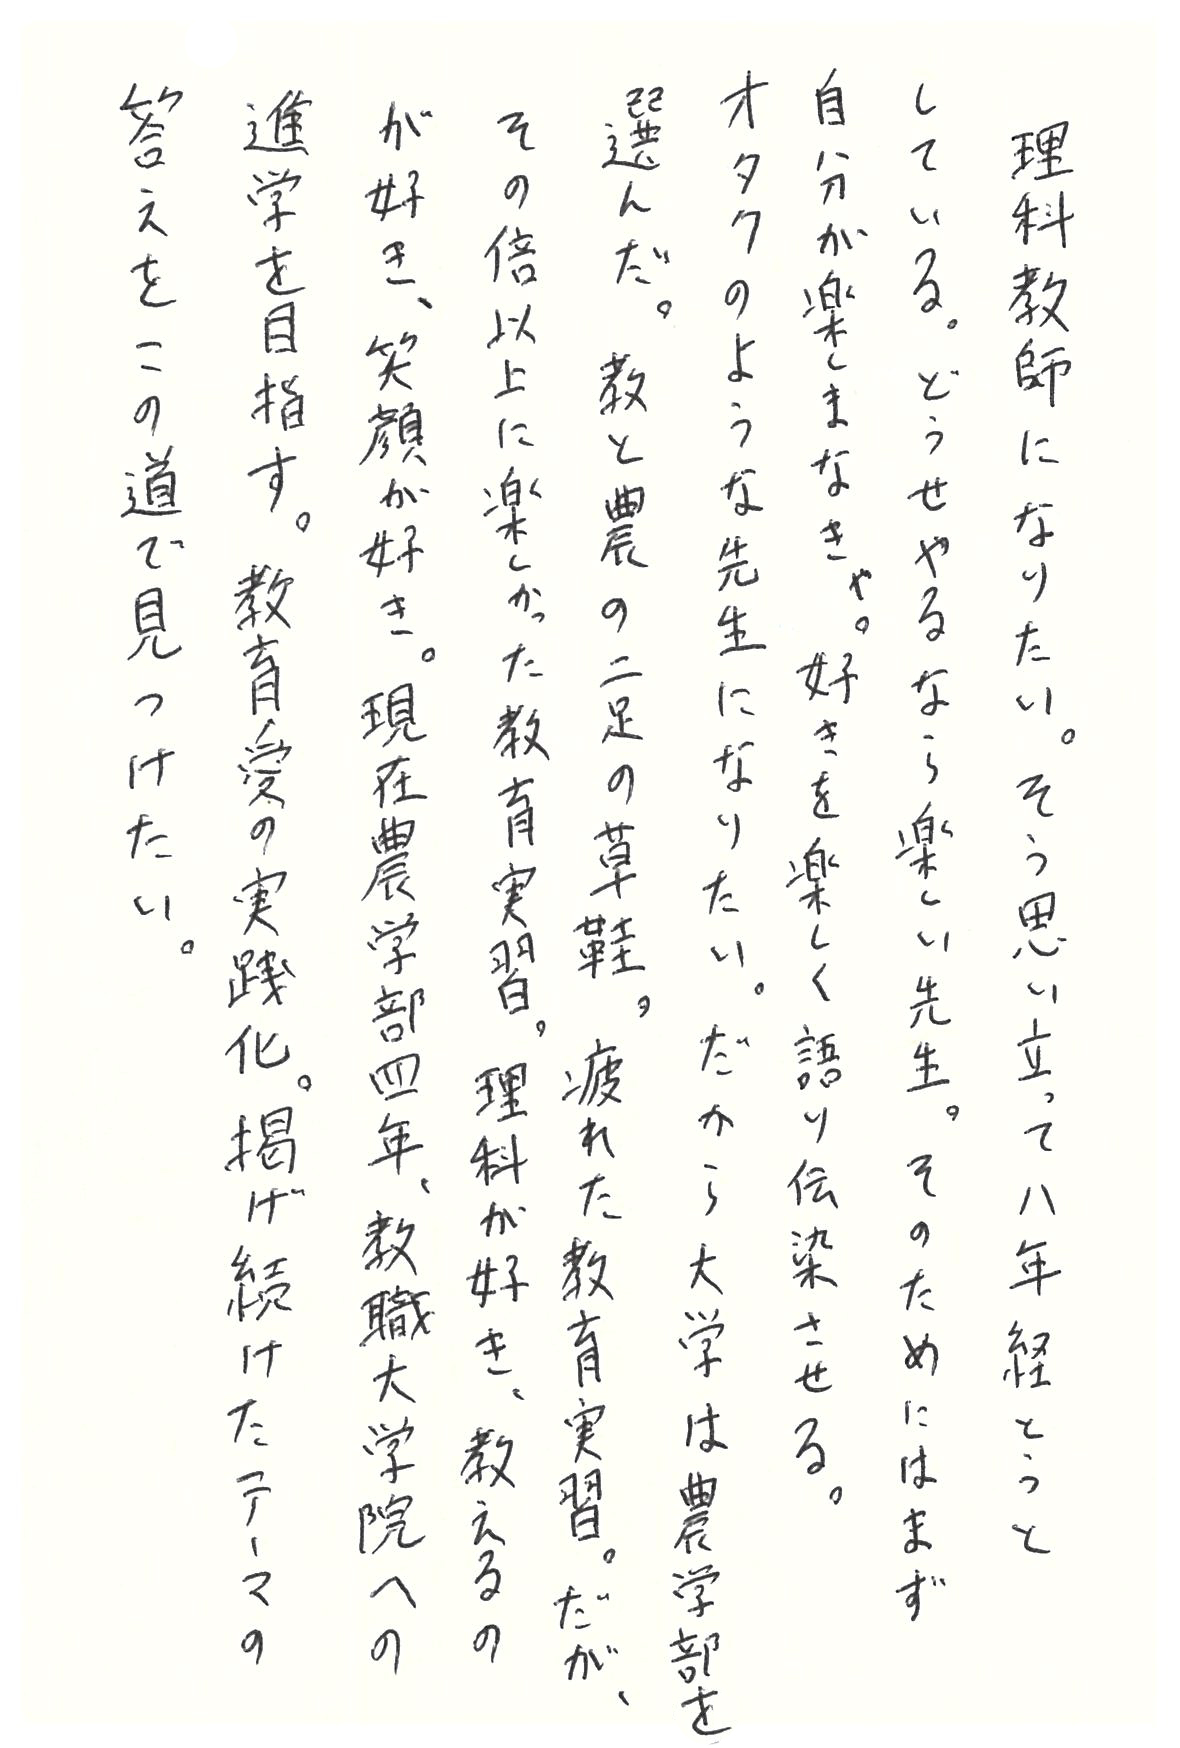 理科教師になりたい。そう思い立って八年経とうと
している。どうせやるなら楽しい先生。そのためにはまず
自分が楽しまなきゃ。好きを楽しく語り伝染させる。
オタクのような先生になりたい。だから大学は農学部を
選んだ。教と農の二足の草鞋。疲れた教育実習。だが、
その倍以上に楽しかった教育実習。理科が好き、教えるの
が好き、笑顔が好き。現在農学部四年、教職大学院への
進学を目指す。教育愛の実践化。掲げ続けたテーマの
答えをこの道で見つけたい。